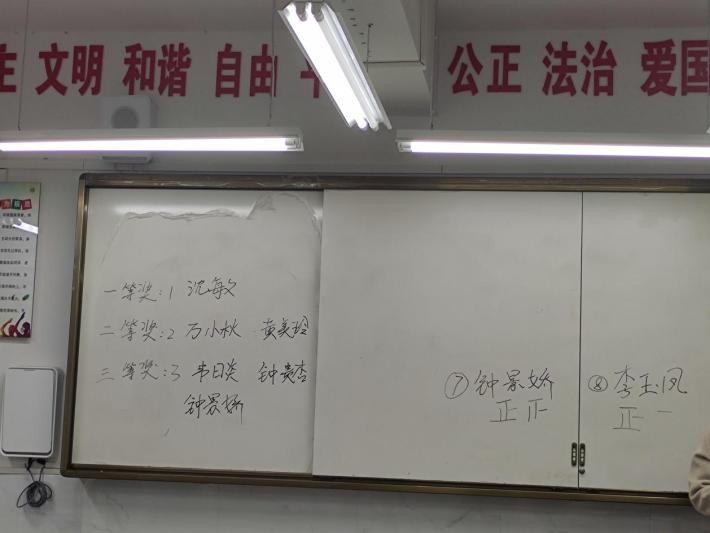 主 文明 和谐 自由 平 公正 法治 爱国
一等奖:1 沈海文
二等奖:2 万小秋 黄美玲
三等奖:3 韦日类 钟贵杏
钟景娇
⑦钟景娇
正正
⑧李玉凤
正一